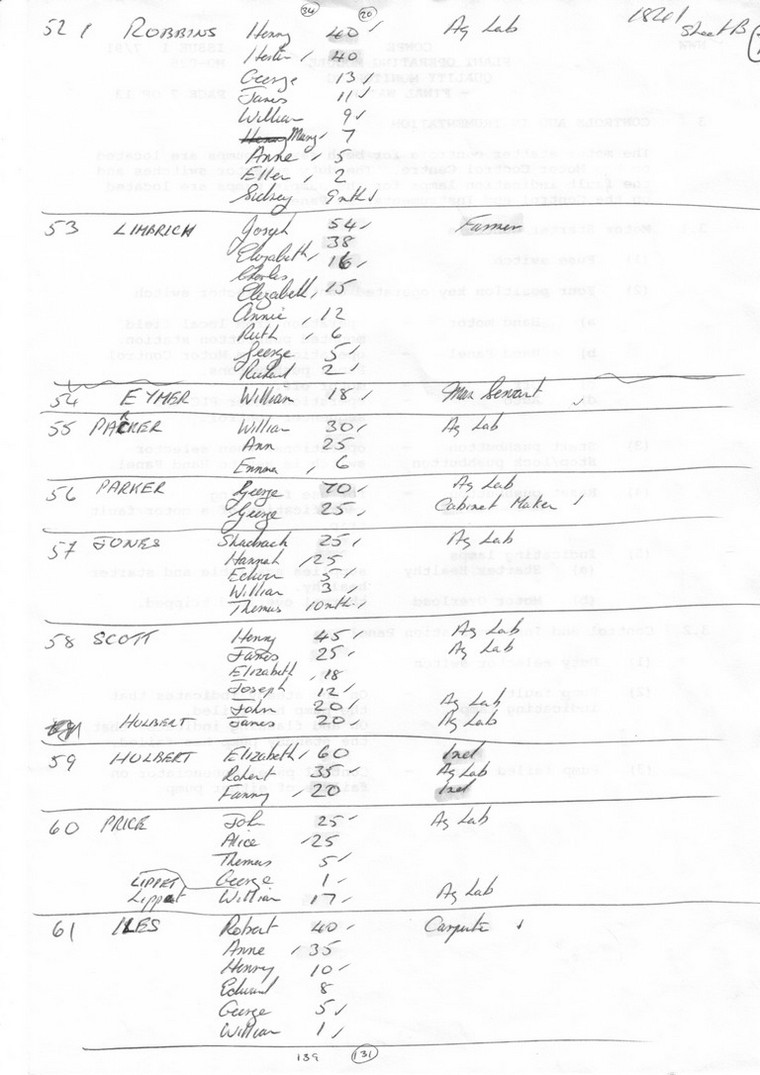 (34) (20)
1841
Sheet B
52 1 ROBBINS Henry 40 ✓ Ag Lab
Hester ✓ 40
George 13 ✓
James 11 ✓
William 9 ✓
Henry Mary ✓ 7
Anne ✓ 5
Ellen ✓ 2
Sidney 9 mths ✓
53 LIMBRICK Joseph 54 ✓ Farmer
Elizabeth ✓ 38
Charles 16 ✓
Elizabeth ✓ 15
Annie ✓ 12
Ruth ✓ 6
George 5 ✓
Richard 2 ✓
54 EYMER William 18 ✓ Man Servant ✓
55 PARKER William 30 ✓ Ag Lab
Ann 25
Emma ✓ 6
56 PARKER George 70 ✓ Ag Lab
George 25 ✓ Cabinet Maker ✓
57 JONES Shadrach 25 ✓ Ag Lab
Hannah ✓ 25
Edwin 5 ✓
William 3 ✓
Thomas 10 mths ✓
58 SCOTT Henry 45 ✓ Ag Lab
James 25 ✓ Ag Lab
Elizabeth ✓ 18
Joseph 12 ✓
John 20 ✓ Ag Lab
HULBERT James 20 ✓ Ag Lab
59 HULBERT Elizabeth ✓ 60 Ind
Robert 35 ✓ Ag Lab
Fanny ✓ 20 Ind
60 PRICE John 25 ✓ Ag Lab
Alice ✓ 25
Thomas 5 ✓
LIPPET George 1 ✓
Lippet William 17 ✓ Ag Lab
61 ILES Robert 40 ✓ Carpenter ✓
Anne ✓ 35
Henry 10 ✓
Edward 8
George 5 ✓
William 1 ✓
139 (131)